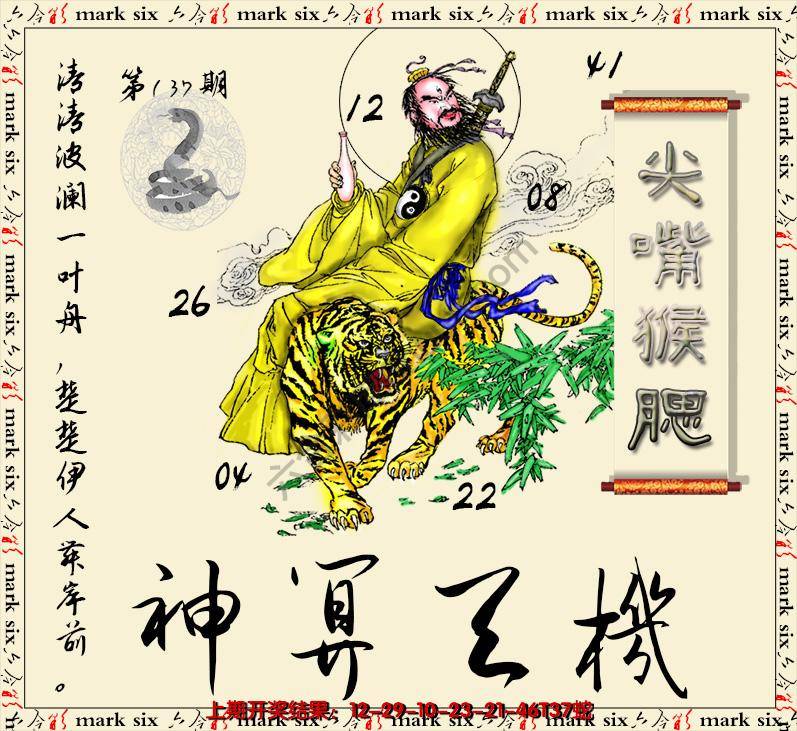 mark six
第137期
清清波澜一叶舟,楚楚伊人萍岸前。
12
41
08
26
04
22
尖嘴猴腮
神算天機
上期开奖结果:12-29-10-23-21-46T37蛇